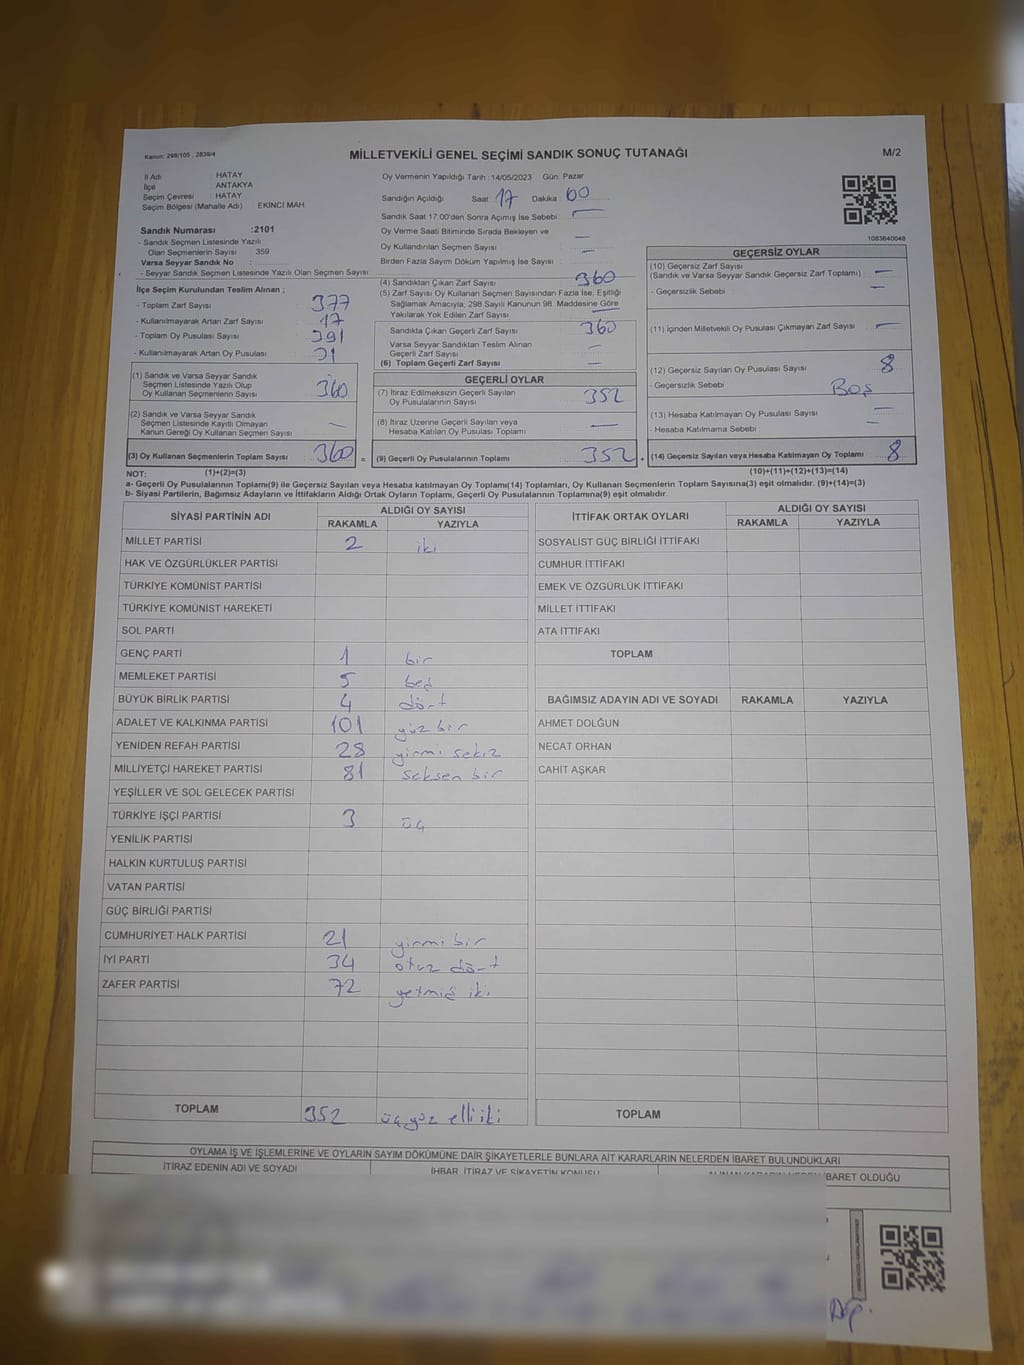 Kanun: 298/105 , 2839/4
MİLLETVEKİLİ GENEL SEÇİMİ SANDIK SONUÇ TUTANAĞI
M/2
İl Adı : HATAY
İlçe : ANTAKYA
Seçim Çevresi : HATAY
Seçim Bölgesi (Mahalle Adı) EKİNCİ MAH
Oy Vermenin Yapıldığı Tarih : 14/05/2023 Gün: Pazar
Sandığın Açıldığı Saat: 17 Dakika: 00
Sandık Saat 17:00'den Sonra Açımış İse Sebebi :
Oy Verme Saati Bitiminde Sırada Bekleyen ve
Oy Kullandırılan Seçmen Sayısı : —
Birden Fazla Sayım Döküm Yapılmış İse Sayısı : —
1083640048
Sandık Numarası :2101
- Sandık Seçmen Listesinde Yazılı
Olan Seçmenlerin Sayısı 359
Varsa Seyyar Sandık No :
- Seyyar Sandık Seçmen Listesinde Yazılı Olan Seçmen Sayısı
İlçe Seçim Kurulundan Teslim Alınan ;
- Toplam Zarf Sayısı 377
- Kullanılmayarak Artan Zarf Sayısı 17
- Toplam Oy Pusulası Sayısı 391
- Kullanılmayarak Artan Oy Pusulası 31
(1) Sandık ve Varsa Seyyar Sandık
Seçmen Listesinde Yazılı Olup
Oy Kullanan Seçmenlerin Sayısı 360
(2) Sandık ve Varsa Seyyar Sandık
Seçmen Listesinde Kayıtlı Olmayan
Kanun Gereği Oy Kullanan Seçmen Sayısı —
(3) Oy Kullanan Seçmenlerin Toplam Sayısı 360 =
(1)+(2)=(3)
(4) Sandıktan Çıkan Zarf Sayısı 360
(5) Zarf Sayısı Oy Kullanan Seçmen Sayısından Fazla İse, Eşitliği
Sağlamak Amacıyla, 298 Sayılı Kanunun 98. Maddesine Göre
Yakılarak Yok Edilen Zarf Sayısı —
Sandıkta Çıkan Geçerli Zarf Sayısı 360
Varsa Seyyar Sandıktan Teslim Alınan
Geçerli Zarf Sayısı —
(6) Toplam Geçerli Zarf Sayısı —
GEÇERLİ OYLAR
(7) İtiraz Edilmeksizin Geçerli Sayılan
Oy Pusulalarının Sayısı 352
(8) İtiraz Üzerine Geçerli Sayılan veya
Hesaba Katılan Oy Pusulaları Toplamı —
(9) Geçerli Oy Pusulalarının Toplamı 352 +
GEÇERSİZ OYLAR
(10) Geçersiz Zarf Sayısı
(Sandık ve Varsa Seyyar Sandık Geçersiz Zarf Toplamı) —
- Geçersizlik Sebebi : —
(11) İçinden Milletvekili Oy Pusulası Çıkmayan Zarf Sayısı —
(12) Geçersiz Sayılan Oy Pusulası Sayısı 8
- Geçersizlik Sebebi Boş
(13) Hesaba Katılmayan Oy Pusulası Sayısı —
- Hesaba Katılmama Sebebi : —
(14) Geçersiz Sayılan veya Hesaba Katılmayan Oy Toplamı 8
(10)+(11)+(12)+(13)=(14)
NOT:
a- Geçerli Oy Pusulalarının Toplamı(9) ile Geçersiz Sayılan veya Hesaba Katılmayan Oy Toplamı(14) Toplamları, Oy Kullanan Seçmenlerin Toplam Sayısına(3) eşit olmalıdır. (9)+(14)=(3)
b- Siyasi Partilerin, Bağımsız Adayların ve İttifakların Aldığı Ortak Oyların Toplamı, Geçerli Oy Pusulalarının Toplamına(9) eşit olmalıdır.
SİYASİ PARTİNİN ADI ALDIĞI OY SAYISI
RAKAMLA YAZIYLA
MİLLET PARTİSİ 2 iki
HAK VE ÖZGÜRLÜKLER PARTİSİ
TÜRKİYE KOMÜNİST PARTİSİ
TÜRKİYE KOMÜNİST HAREKETİ
SOL PARTİ
GENÇ PARTİ 1 bir
MEMLEKET PARTİSİ 5 beş
BÜYÜK BİRLİK PARTİSİ 4 dört
ADALET VE KALKINMA PARTİSİ 101 yüz bir
YENİDEN REFAH PARTİSİ 28 yirmi sekiz
MİLLİYETÇİ HAREKET PARTİSİ 81 seksen bir
YEŞİLLER VE SOL GELECEK PARTİSİ
TÜRKİYE İŞÇİ PARTİSİ 3 üç
YENİLİK PARTİSİ
HALKIN KURTULUŞ PARTİSİ
VATAN PARTİSİ
GÜÇ BİRLİĞİ PARTİSİ
CUMHURİYET HALK PARTİSİ 21 yirmi bir
İYİ PARTİ 34 otuz dört
ZAFER PARTİSİ 72 yetmiş iki
TOPLAM 352 üç yüz elli iki
İTTİFAK ORTAK OYLARI ALDIĞI OY SAYISI
RAKAMLA YAZIYLA
SOSYALİST GÜÇ BİRLİĞİ İTTİFAKI
CUMHUR İTTİFAKI
EMEK VE ÖZGÜRLÜK İTTİFAKI
MİLLET İTTİFAKI
ATA İTTİFAKI
TOPLAM
BAĞIMSIZ ADAYIN ADI VE SOYADI RAKAMLA YAZIYLA
AHMET DOLĞUN
NECAT ORHAN
CAHİT AŞKAR
TOPLAM
OYLAMA İŞ VE İŞLEMLERİNE VE OYLARIN SAYIM DÖKÜMÜNE DAİR ŞİKAYETLERLE BUNLARA AİT KARARLARIN NELERDEN İBARET BULUNDUKLARI
İTİRAZ EDENİN ADI VE SOYADI İHBAR, İTİRAZ VE ŞİKAYETİN KONUSU ALINAN KARARIN NEDEN İBARET OLDUĞU